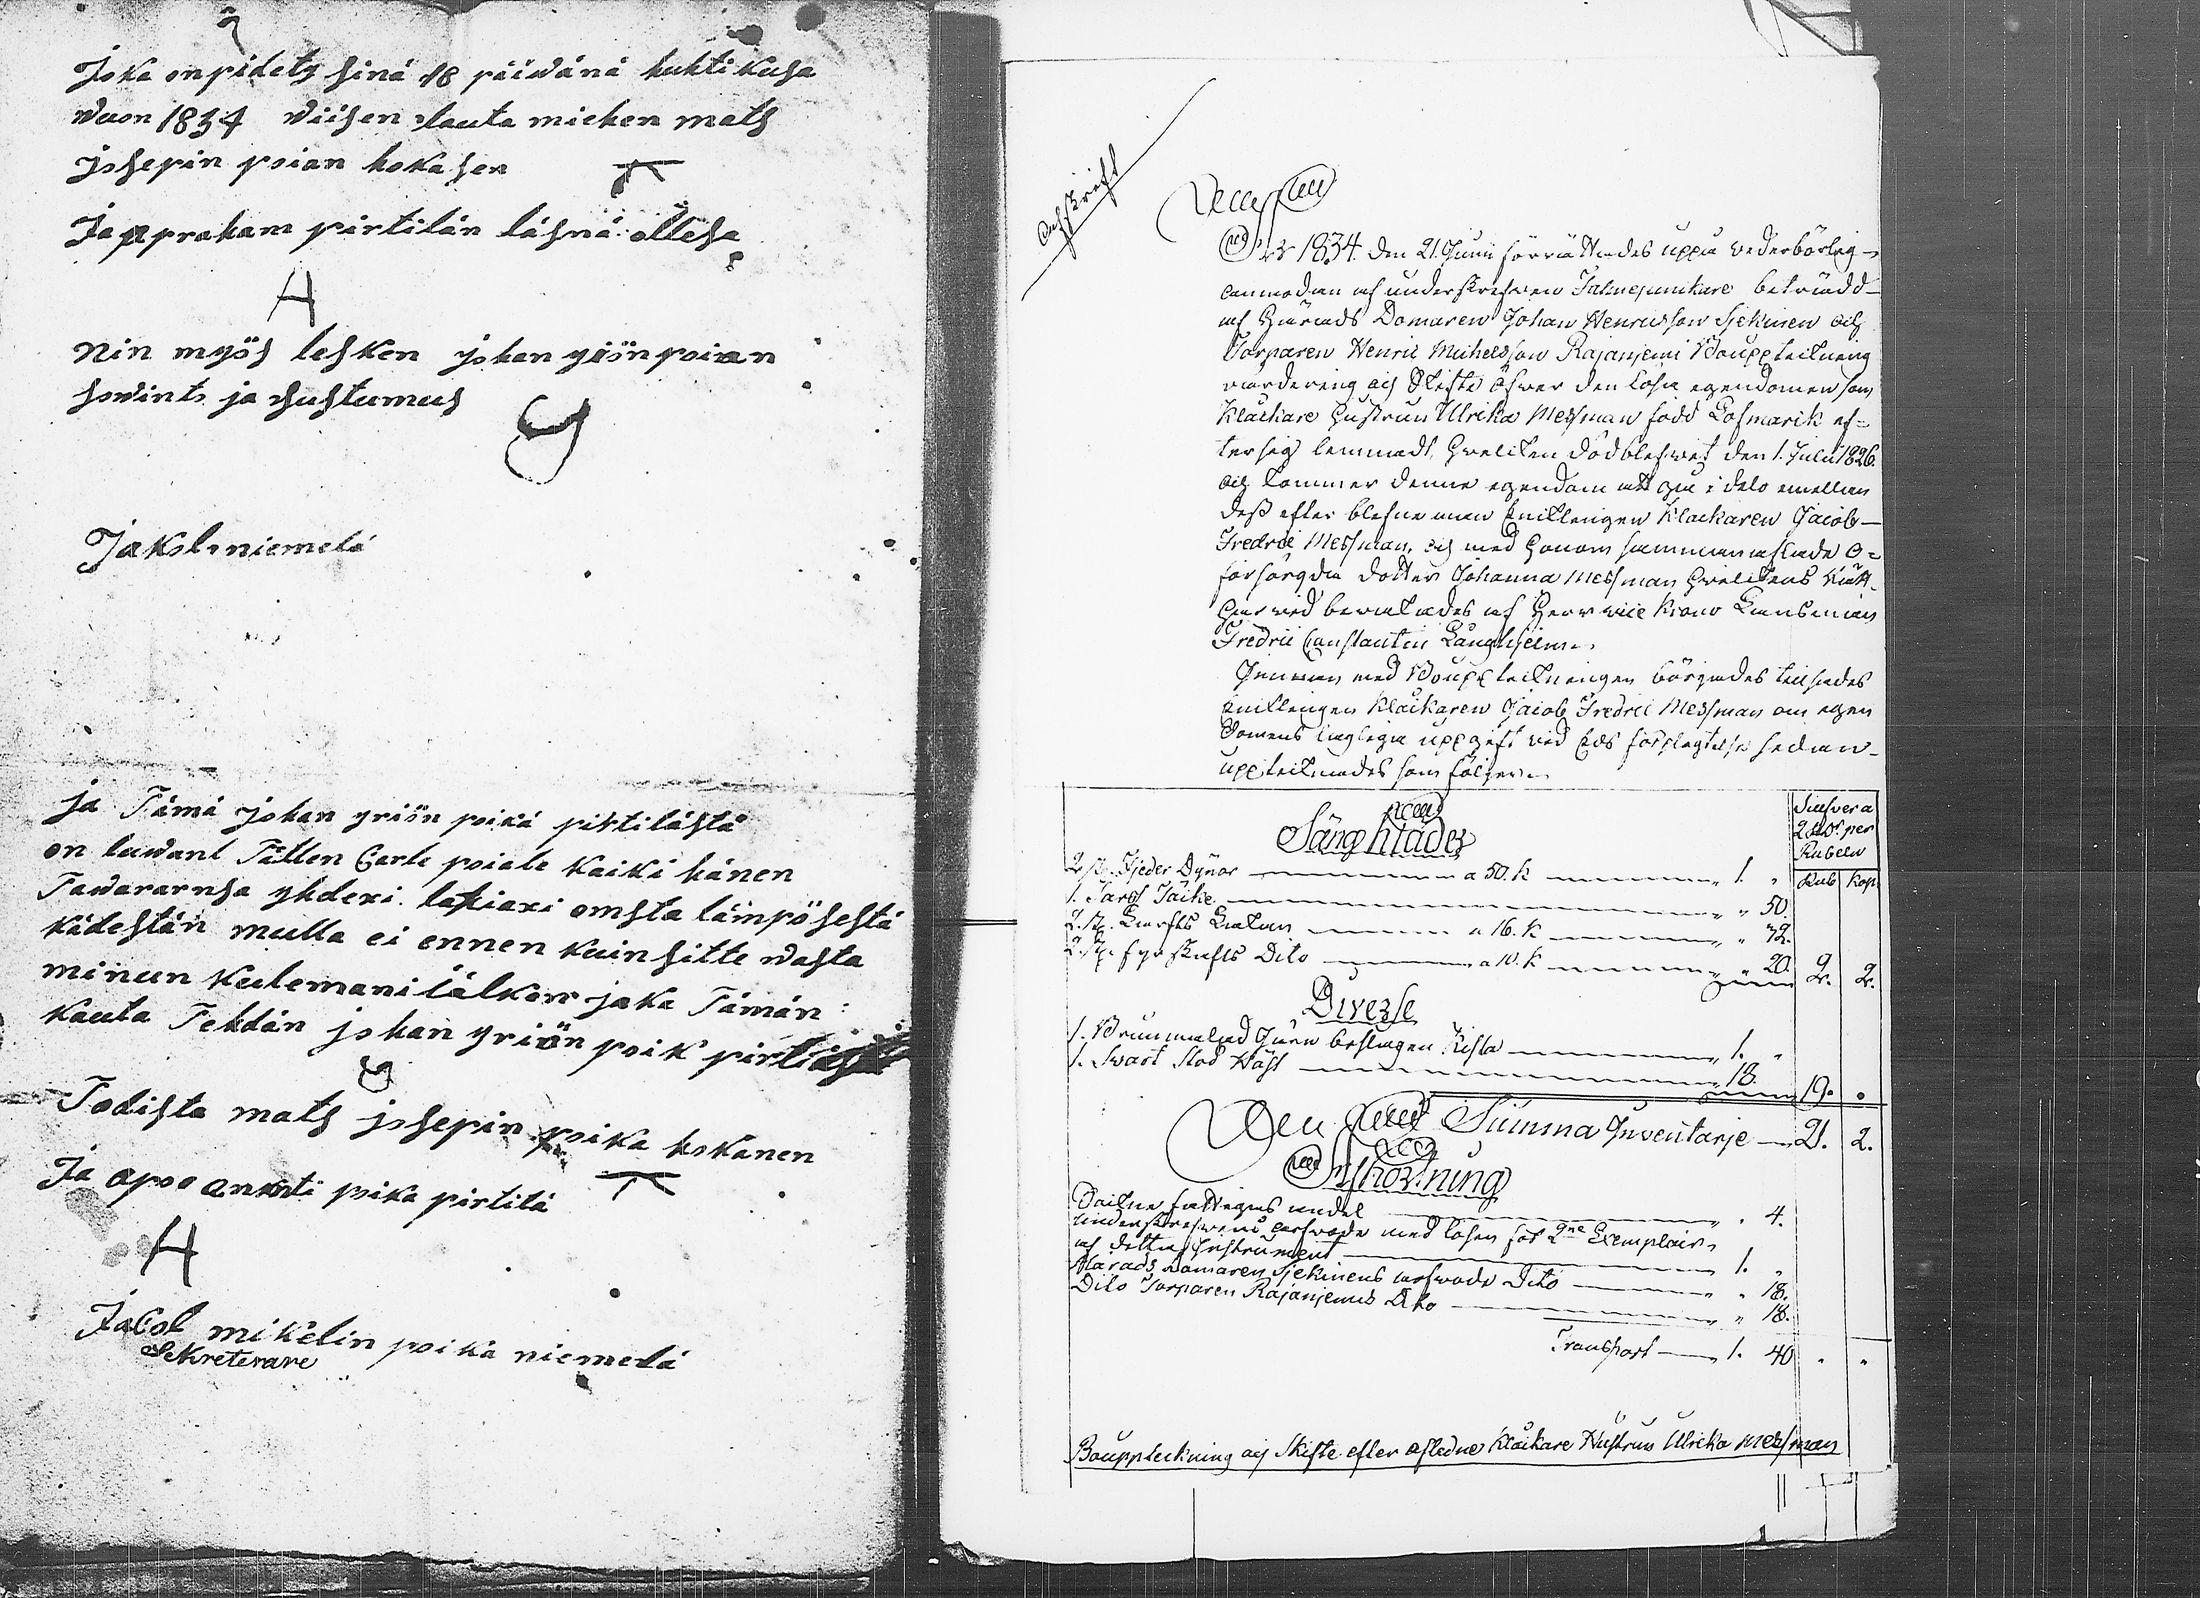 Joka on pidety sinä 18 päiwänä huhtikusa
wuon 1834 wiisen lauta miehen mats
josepin poian kokasen
Ja appraham pirtilän läsnä ollesa
nin myös lesken johan yriön poian
sowinto ja sustumus
Jakob niemelä
ja Tämä johan yriön poikä pirtilästä
on luwanl Tallen Carle poiale kaiki hänen
Tawararnsa yhdexi laxiaxi omsta lämpösestä
kädestän mutta ei ennen kuin sitte wasta
minun kulemani jälken joka Tämän
kauta Tehdän johan yriön poik
Todista mats josepin poika kokanen
Ja apoo ananti poika pirtilä
Jacob mikelin poika niemelä
Sekreterare
Afskrift
År 1834. den 21. Juni förrättades uppå vederbörlig
anmodan af underskrefwen Talmejunkare beträdd
af Härads Domaren Johan Henricsson Sjekinen och
Torparen Henric Michelsson Rajanjemi Boupteckning
wärdering och Skifte öfwer den lösa egendomen som
Klåckare Hustrun Ulrika Messman född Lofmarck ef=
ter sig lemnadt, hwilken dödblefwet den 1. Julii 1826.
och kommer denna egendom att gå i delo emellan
dess efter blefne man Enklingen Klåckaren Jacob
Fredric Messman, och med honom sammanaflade o=
försörgda dotter Johanna Messman hwilkens rätt
här wid bewakades af Herr vice Krono Länsman
Fredric Constantin Långhjelm.
Innan med Bouppteckningen börjades tillsades
Enklingen Klåckaren Jacob Fredric Messman om egen
domens laglega uppgift wid Eds förplegtelse sedan
upptecknades som följer
Silfver a
per
Rubeln
Sängkläder
Rub Kop
2. st. Fjeder Dynor a 50. k 1. "
1. Täcke " 50.
2. st. Lärfts Lakan a 16. k " 32.
2. st. Dito a 10. k " 20. 2. 2.
Diverse
1. Brunmålad Järn beslagen Kista 1. "
1. Swart Stod Häst 18. 19. "
Summa Inventarje 21. 2.
Afkortning
Socknefattigas andel " 4.
Underskrefwens arfwode med lösen för 2ne Exemplair
af detta Instrument 1. "
Härads Domaren Sjekinens arfwode Dito " 18.
Dito Torparen Rajanjemis Dito " 18.
Transport 1. 40 " "
Bouppteckning och Skifte efter aflidne Klåckare Hustrun Ulrika Messman